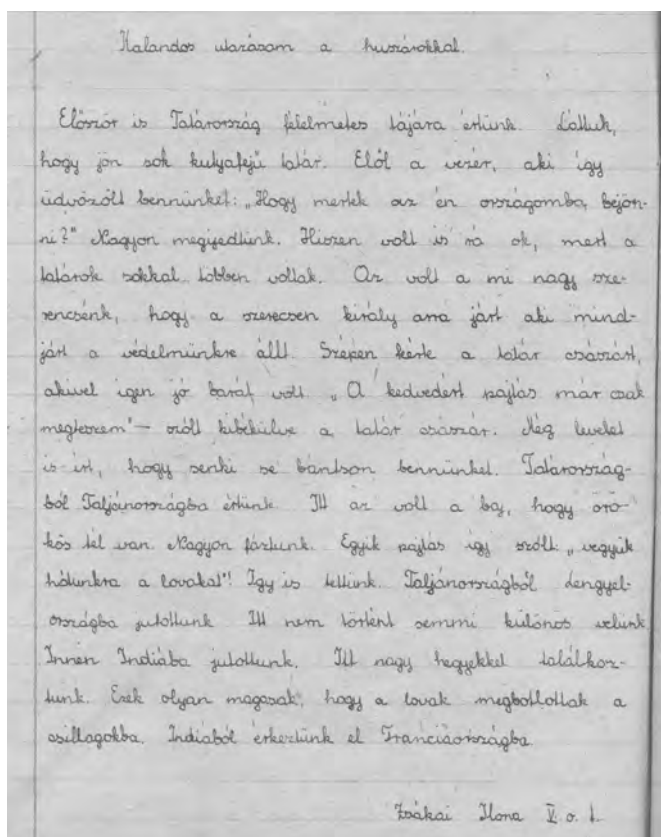 Kalandos utazásom a huszárokkal.
Először is Tatárország félelmetes tájára értünk. Láttuk,
hogy jön sok kutyafejű tatár. Elől a vezér, aki így
üdvözölt bennünket: „Hogy mertek az én országomba, bejön-
ni?" Nagyon megijedtünk. Hiszen volt is rá ok, mert a
tatárok sokkal többen voltak. Az volt a mi nagy sze-
rencsénk, hogy a szerecsen király arra járt aki mind-
járt a védelmünkre állt. Szépen kérte a tatár császárt,
akivel igen jó barát volt. „A kedvedért pajtás már csak
megteszem" – szólt kibékülve a tatár császár. Még levelet
is írt, hogy senki se bántson bennünket. Tatárország-
ból Taljánországba értünk. Itt az volt a baj, hogy örö-
kös tél van. Nagyon fáztunk. Egyik pajtás így szólt: „vegyük
hátunkra a lovakat"! Így is tettünk. Taljánországból Lengyel-
országba jutottunk Itt nem történt semmi különös velünk
Innen Indiába jutottunk. Itt nagy hegyekkel találkoz-
tunk. Ezek olyan magasak, hogy a lovak megbotlottak a
csillagokba. Indiából érkeztünk el Franciaországba.
Zsákai Ilona V. o. t.